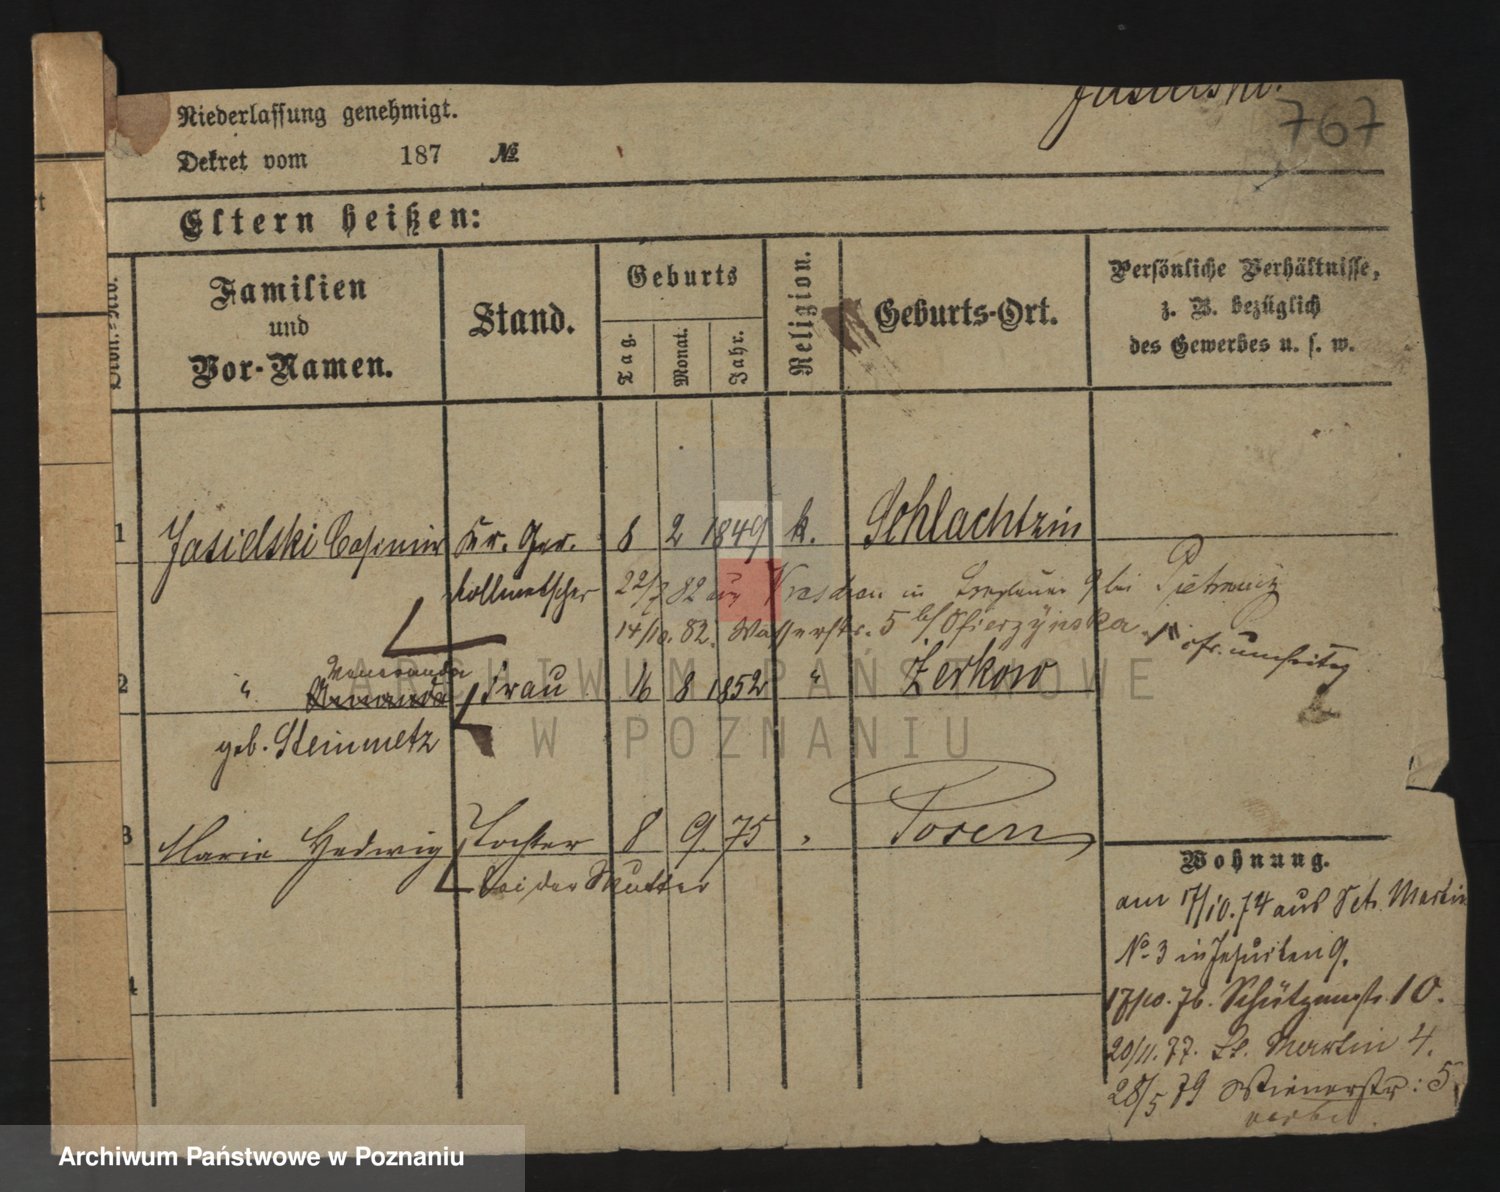 Jasielski.
767
Niederlassung genehmigt.
Dekret vom 187 №
Eltern heißen:
Familien und Vor-Namen.
Stand.
Geburts
Tag.
Monat.
Jahr.
Religion.
Geburts-Ort.
Persönliche Verhältnisse,
z. B. bezüglich
des Gewerbes u. s. w.
1 Jasielski Casimir Kr. Ger. 8 2 1849 k. Schlachtzin
Dollmetscher 22/7 82 in 9 bei
14/10. 82. Wasserstr. 5 b/
2 " Frau 16 8 1852 " Zerkow
geb. Steinmetz
3 Marie Hedwig Tochter 8 9. 75 " Posen
bei der Mutter
4
Wohnung.
am 17/10. 74 aus Sct. Martin
No 3 in Jesuiten 9.
17/10. 76. Schützenstr. 10.
20/11. 77. St. Martin 4.
28/5 79 Wienerstr: 5
ARCHIWUM PAŃSTWOWE
W POZNANIU
Archiwum Państwowe w Poznaniu